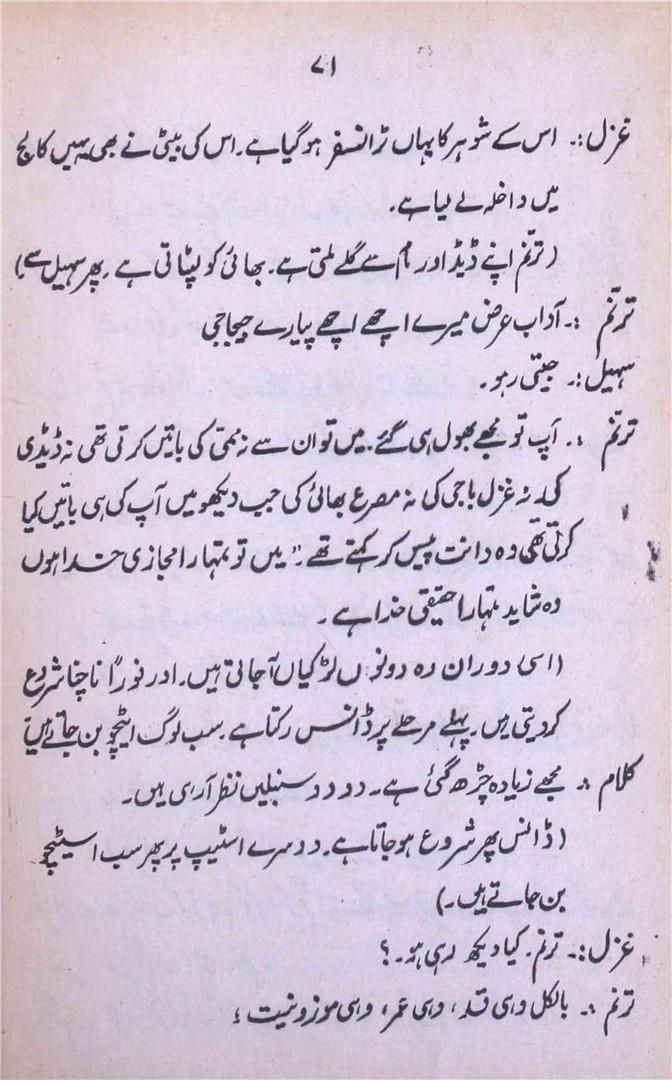 ۷۱
غزل :۔ اس کے شوہر کا یہاں ٹرانسفر ہو گیا ہے۔ اس کی بیٹی نے بھی یہیں کالج
میں داخلہ لے لیا ہے۔
(ترنّم اپنے ڈیڈ اور مم سے گلے ملتی ہے۔ بھائی کو لپٹاتی ہے۔ پھر سہیل سے)
ترنّم :۔ آداب عرض میرے اچھے اچھے پیارے جیجا جی
سہیل :۔ جیتی رہو۔
ترنّم :۔ آپ تو مجھے بھول ہی گئے۔ میں تو ان سے نہ ممی کی باتیں کرتی تھی نہ ڈیڈی
کی۔ نہ غزل باجی کی نہ مصرع بھائی کی جب دیکھو میں آپ کی ہی باتیں کیا
کرتی تھی وہ دانت پیس کر کہتے تھے۔ "میں تو تمہارا مجازی خدا ہوں
وہ شاید تمہارا حقیقی خدا ہے۔
(اسی دوران وہ دونوں لڑکیاں آجاتی ہیں۔ اور فوراً ناچنا شروع
کر دیتی ہیں۔ پہلے مرحلے پر ڈانس رکتا ہے۔ سب لوگ اٹیچو بن جاتے ہیں)
کلام :۔ مجھے زیادہ چڑھ گئی ہے۔ دو دو سنبلیں نظر آرہی ہیں۔
(ڈانس پھر شروع ہو جاتا ہے۔ دوسرے اسٹیپ پر پھر سب اسٹیچو
بن جاتے ہیں۔)
غزل :۔ ترنم۔ کیا دیکھ رہی ہو۔؟
ترنم :۔ بالکل وہی قد، وہی عمر، وہی موزونیت ؛